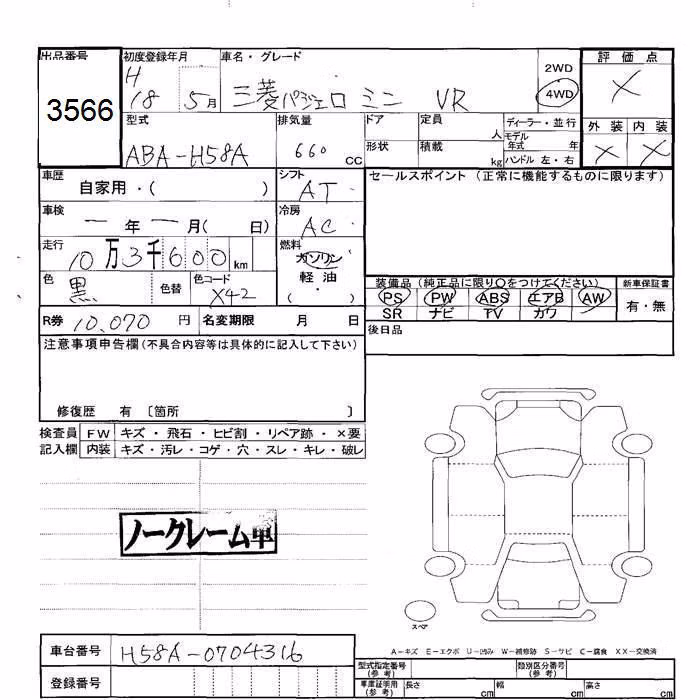 出品番号 初度登録年月 車名・グレード 2WD 評価点
3566 H 18 5月 三菱パジェロミニ VR 4WD ×
型式 排気量 ドア 定員 人 ディーラー・並行 外装 内装
ABA-H58A 660 CC 形状 積載 kg モデル年式 年 ハンドル 左・右 × ×
車歴 自家用・( ) シフト AT セールスポイント (正常に機能するものに限ります)
車検 ー年ー月( 日) 冷房 AC
走行 10万3千600km 燃料 ガソリン 軽油 ( )
色 黒 色替 色コード X42 装備品 (純正品に限り○をつけてください) 新車保証書
PS PW ABS エアB AW 有・無
SR ナビ TV カワ
R券 10,070円 名変期限 月 日 後日品
注意事項申告欄(不具合内容等は具体的に記入して下さい)
修復歴 有 〔箇所 〕
検査員 FW キズ・飛石・ヒビ割・リペア跡・×要
記入欄 内装 キズ・汚レ・コゲ・穴・スレ・キレ・破レ
ノークレーム車
スペア
A-キズ E-エクボ U-凹み W-補修跡 S-サビ C-腐食 XX-交換済
車台番号 H58A-0704316
登録番号
型式指定番号(参考) 類別区分番号(参考)
車庫証明用(参考) 長さ cm 幅 cm 高さ cm